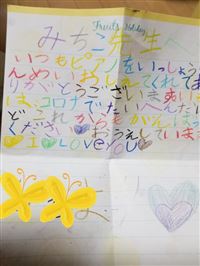 Fruits Holiday
みちこ先生へ
いつもピアノをいっしょうけ
んめいおしえてくれてあ
りがとうございます
は、コロナでたいへんだけ
どこれからもがんば
ください おうえんしています
I LOVE YOU